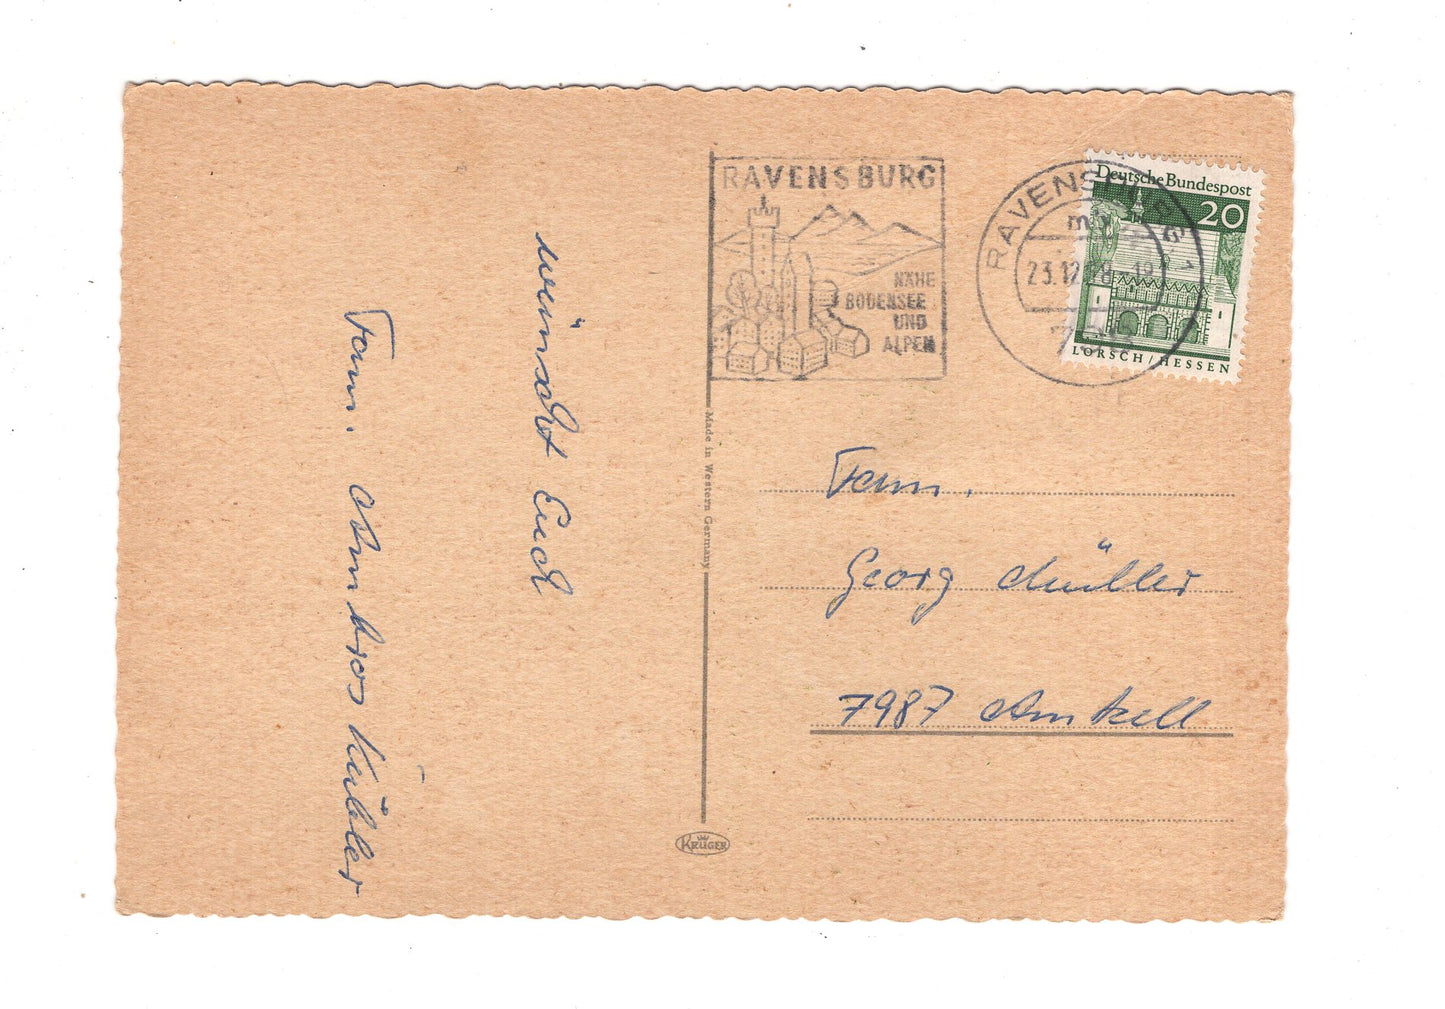 wünscht Euch
Fam. Ambros Kübler
RAVENSBURG
NÄHE
BODENSEE
UND
ALPEN
RAVENSBURG 1
23.12
Deutsche Bundespost
20
LORSCH/HESSEN
Made in Western Germany
Fam.
Georg Müller
7987
KRÜGER